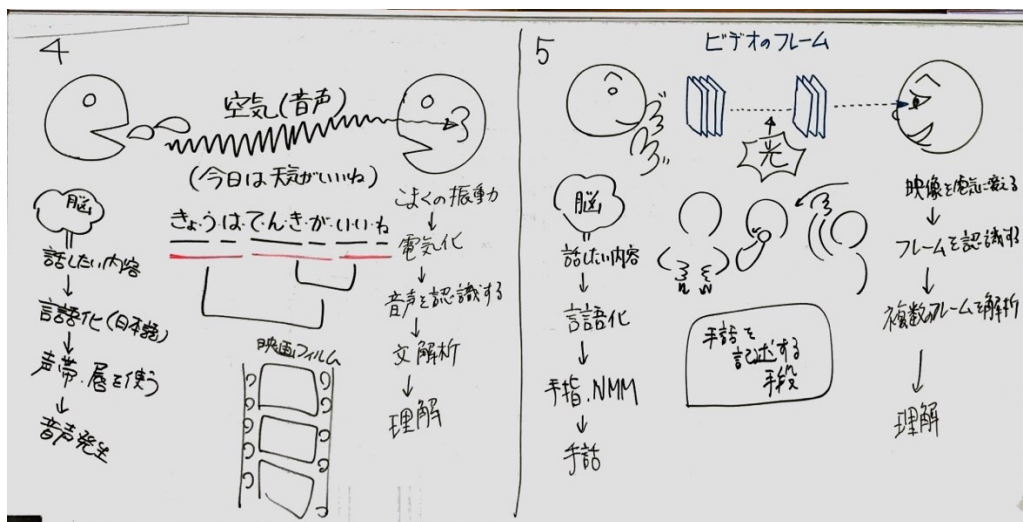 4
空気(音声)
(今日は天気がいいね)
きょ・う・は・て・ん・き・が・い・い・ね
脳
話したい内容
↓
言語化(日本語)
↓
声帯・唇を使う
↓
音声発生
映画フィルム
こまくの振動
↓
電気化
↓
音声を認識する
↓
文解析
↓
理解
5
ビデオのフレーム
光
脳
話したい内容
↓
言語化
↓
手指、NMM
↓
手話
手話を
記述する
手段
映像を電気に変える
↓
フレームを認識する
↓
複数のフレームを解析
↓
理解